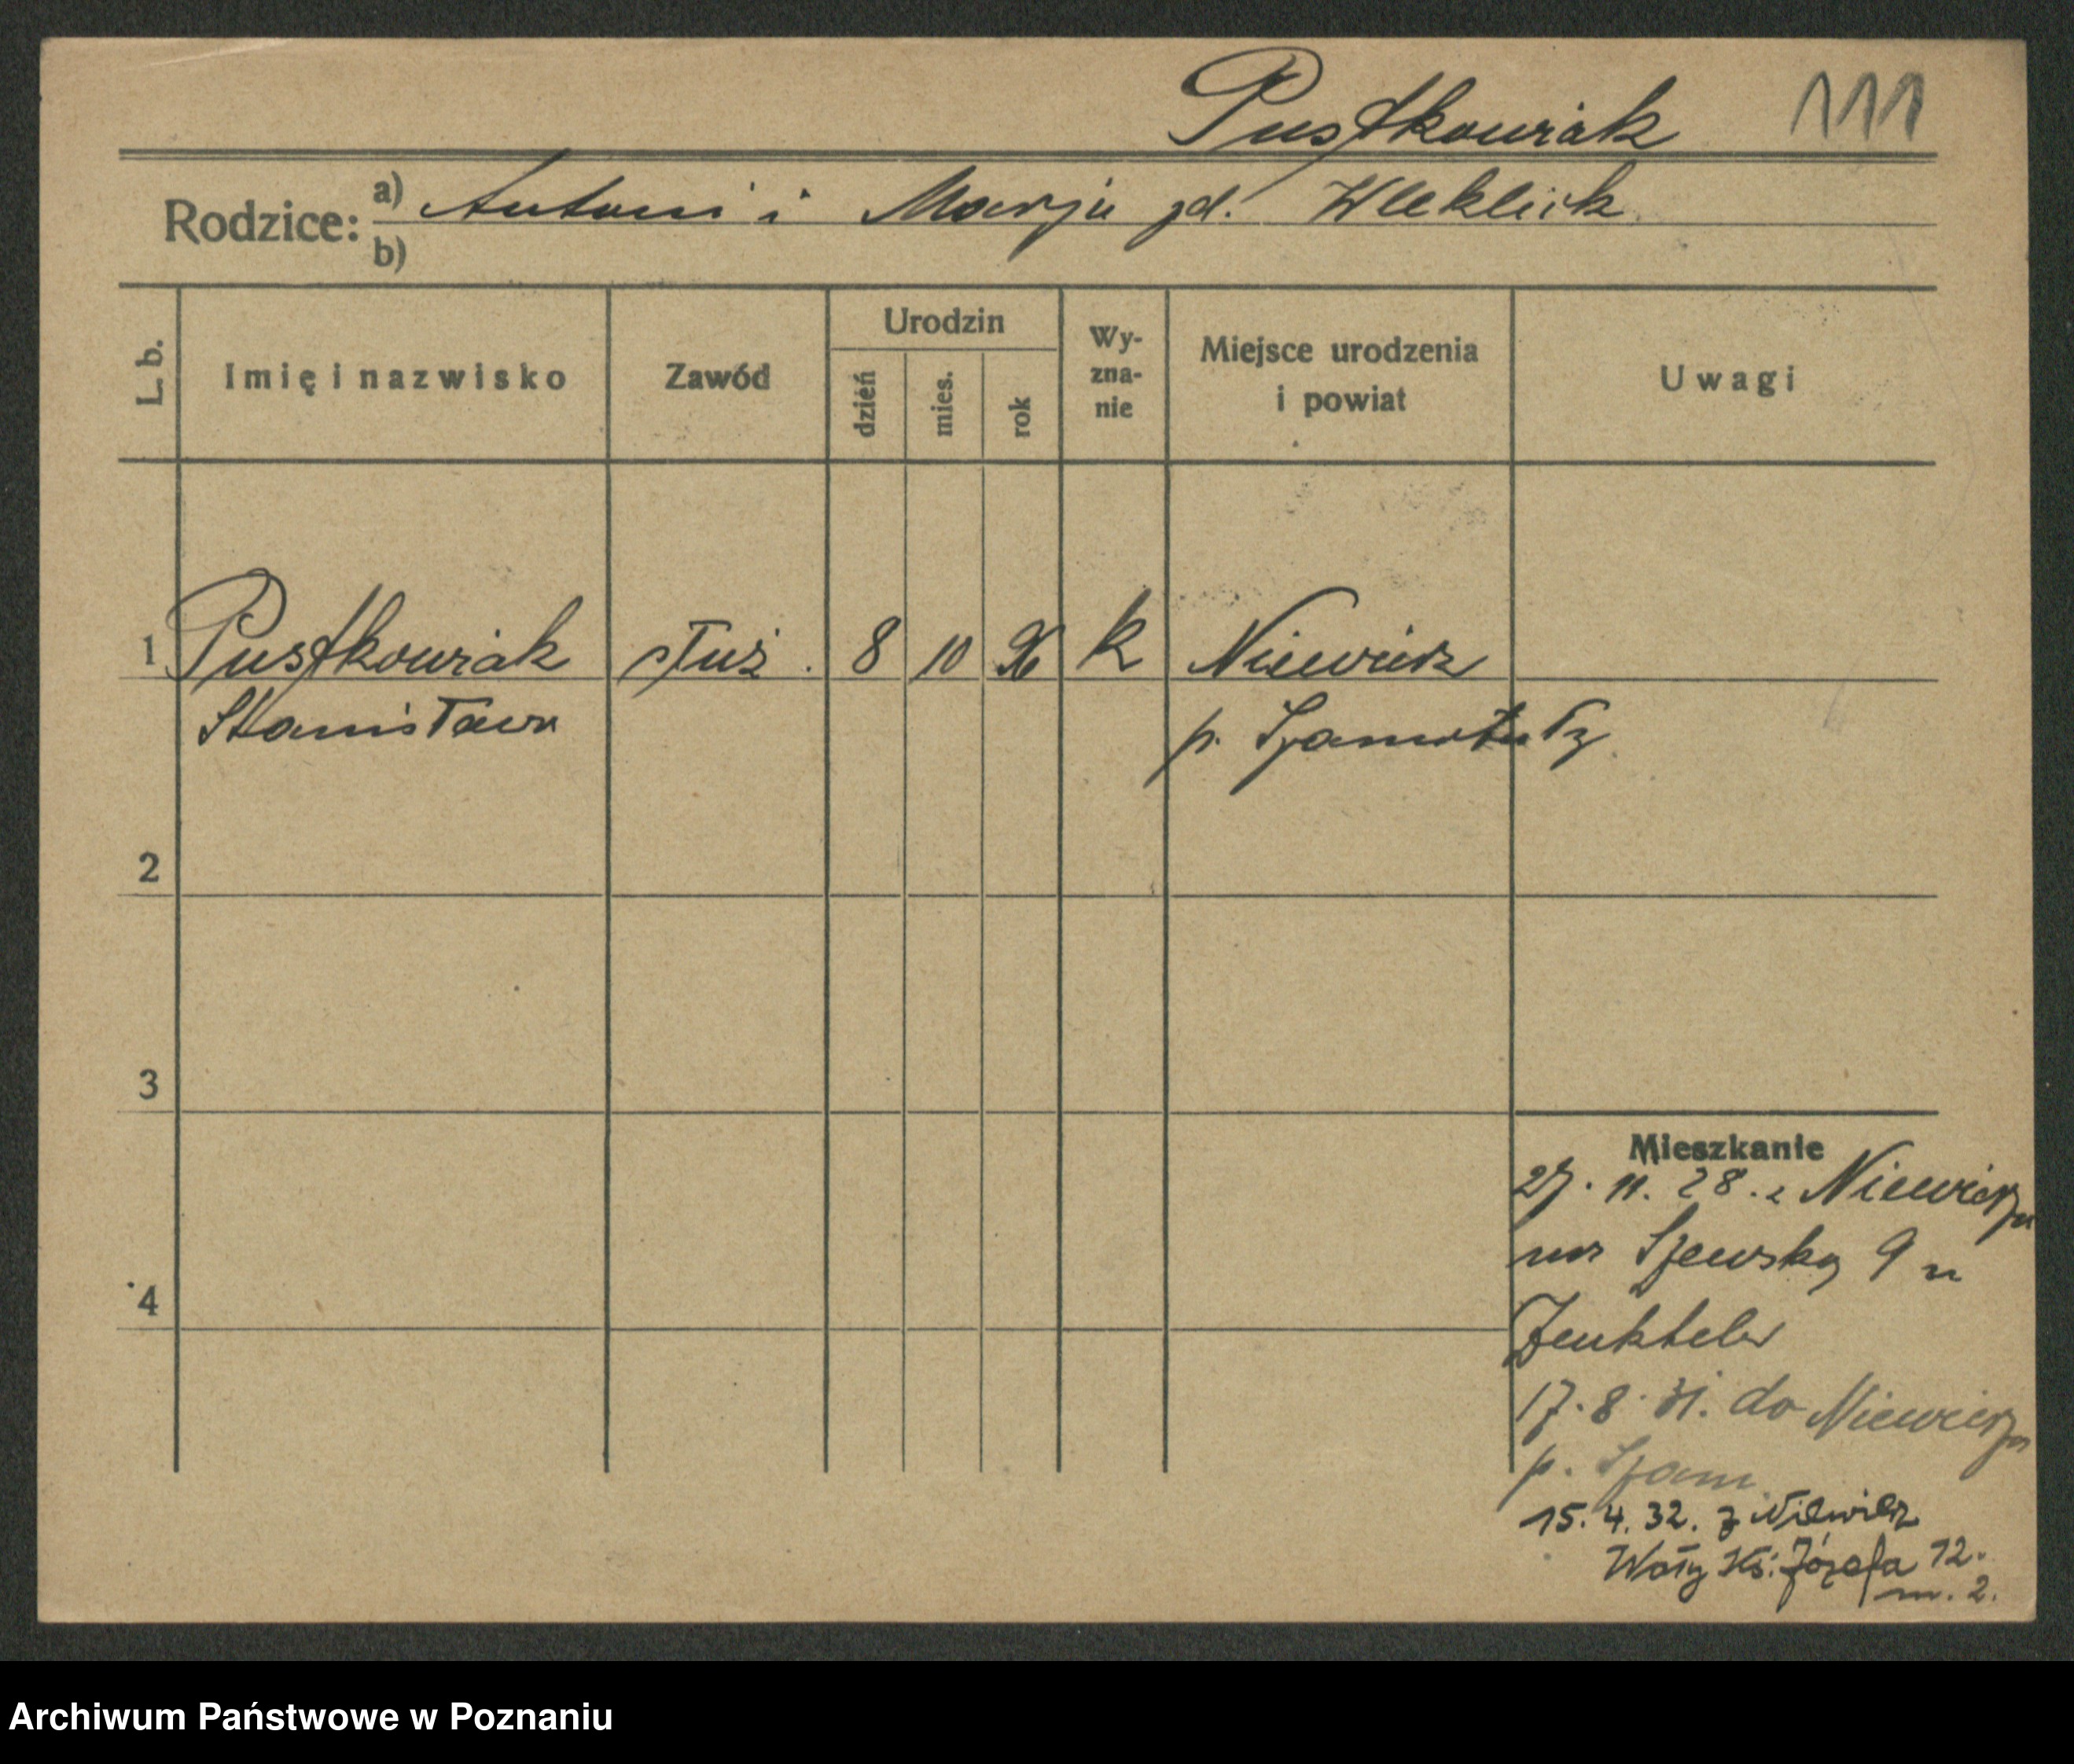 Pustkowiak 111
Rodzice: a) Antoni i Marja zd. Wleklik
b)
L. b. Imię i nazwisko Zawód Urodzin dzień mies. rok Wy-zna-nie Miejsce urodzenia i powiat Uwagi
1 Pustkowiak służ. 8 10 96 k Niewierz
Stanisława p. Szamotuły
2
3
4
Mieszkanie
27. 11. 28. z Niewierza
na Szewską 9 u
Zenkteler
17. 8. 31. do Niewierza
p. Szam.
15. 4. 32. z Niewierz
Wały Ks: Józefa 12.
m. 2.
Archiwum Państwowe w Poznaniu